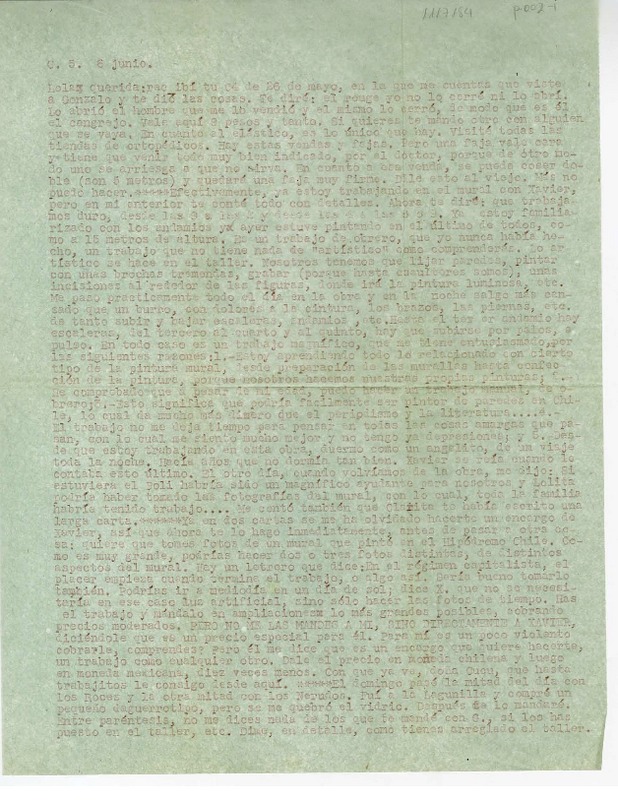 11/7/84 p002-i
C. 5. 6 junio.
Lola querida: recibí tu C4 de 26 de mayo, en la que me cuentas que viste
a Gonzalo y te dió las cosas. Te diré: el rouge yo no lo cerré ni lo abrí.
Lo abrió el hombre que me lo vendió y el mismo lo cerró, de modo que es él
el cangrejo. Vale aquí 3 pesos y tanto. Si quieres te mando otro con alguien
que se vaya. En cuanto al elástico, es lo único que hay. Visité todas las
tiendas de ortopédicos. Hay estas vendas y fajas. Pero una faja vale caro
y tiene que venir todo muy bien indicado, por el doctor, porque de otro mo-
do uno se arriesga a que no sirva. En cuanto a esa venda, se puede coser do-
ble (son 6 metros) y quedará una faja muy firme. Dile esto al viejo. Más no
puedo hacer. Efectivamente, ya estoy trabajando en el mural con Xavier,
pero en mi anterior te conté todo con detalles. Ahora te diré: que trabaja-
mos duro, desde las Ya estoy familia-
rizado con los andamios ya ayer estuve pintando en el último de todos, co-
mo a 15 metros de altura. Es un trabajo de obrero, que yo nunca había he-
cho, un trabajo que no tiene nada de "artístico" como comprenderás. Lo ar-
tístico se hace en el taller. Nosotros tenemos que lijar paredes, pintar
con unas brochas tremendas, grabar (porque hasta escultores somos), unas
incisiones al rededor de las figuras, donde irá la pintura luminosa, etc.
Me paso prácticamente todo el día en la obra y en la noche salgo más can-
sado que un burro, con dolores a la cintura, los brazos, las piernas, etc.
de tanto subir y bajar escaleras, andamios, etc. Hasta el tercer andamio hay
escaleras, del tercero al cuarto y al quinto, hay que subirse por palos, a
pulso. En todo caso es un trabajo magnífico, que me tiene entusiasmado, por
las siguientes razones: 1.-Estoy aprendiendo todo lo relacionado con cierto
tipo de la pintura mural, desde preparación de las murallas hasta confec-
ción de la pintura, porque nosotros hacemos nuestras propias pinturas; 2.-
He comprobado que a pesar de mi puedo trabajar de o-
brero; 3.-Esto significa que podría fácilmente ser pintor de paredes en Chi-
le, lo cual da mucho más dinero que el periodismo y la literatura....4.-
El trabajo no me deja tiempo para pensar en todas las cosas amargas que pa-
san, con lo cual me siento mucho mejor y no tengo ya depresiones; y 5. Des-
de que estoy trabajando en esta obra, duermo como un angelito, de un viaje
toda la noche. Hacía años que no dormía tan bien. Xavier reía cuando le
contaba esto último. El otro día, cuando volvíamos de la obra, me dijo: Si
estuviera el Poli habría sido un magnífico ayudante para nosotros y Lolita
podría haber tomado las fotografías del mural, con lo cual, toda la familia
habría tenido trabajo.... Me contó también que Clarita te había escrito una
larga carta. Ya en dos cartas se me ha olvidado hacerte un encargo de
Xavier, así que ahora te lo hago inmediatamente, antes de pasar a otra co-
sa: quiere que tomes fotos de un mural que pintó en el Hipódromo Chile. Co-
mo es muy grande, podrías hacer dos o tres fotos distintas, de distintos
aspectos del mural. Hay un letrero que dice: En el régimen capitalista, el
placer empieza cuando termina el trabajo, o algo así. Sería bueno tomarlo
también. Podrías ir a mediodía en un día de sol; dice X. que no se necesi-
taría en ese caso luz artificial, sino sólo hacer las fotos de tiempo. Haz
el trabajo y mándalo en ampliaciones lo más grandes posibles, cobrando
precios moderados. PERO NO ME LAS MANDES A MI, SINO DIRECTAMENTE A XAVIER,
diciéndole que es un precio especial para él. Para mí es un poco violento
cobrarle, comprendes? Pero él me dice que es un encargo que quiere hacerte,
un trabajo como cualquier otro. Dale el precio en moneda chilena y luego
en moneda mexicana, diez veces menos. Con que ya ve, doña Cucu, que hasta
trabajitos le consigo desde aquí. El domingo pasé la mitad del día con
los Roces y la otra mitad con los Nerudos. Fui a la Lagunilla y compré un
pequeño daguerrotipo, pero se me quebró el vidrio. Después te lo mandaré.
Entre paréntesis, no me dices nada de los que te mandé con G., si los has
puesto en el taller, etc. Dime, en detalle, como tienes arreglado el taller.